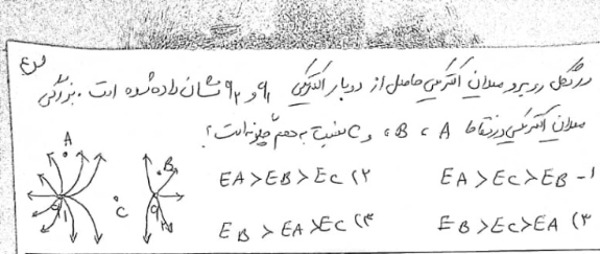 در شکل روبرو میدان الکتریکی حاصل از دو بار الکتریکی q۱ و q۲ نشان داده شده است . بزرگی
میدان الکتریکی در نقاط A ، B ، و C نسبت به هم چگونه است ؟
EA > EC > EB -۱
EA > EB > EC (۲
EB > EC > EA (۳
EB > EA > EC (۳
A
B
C
q1
q